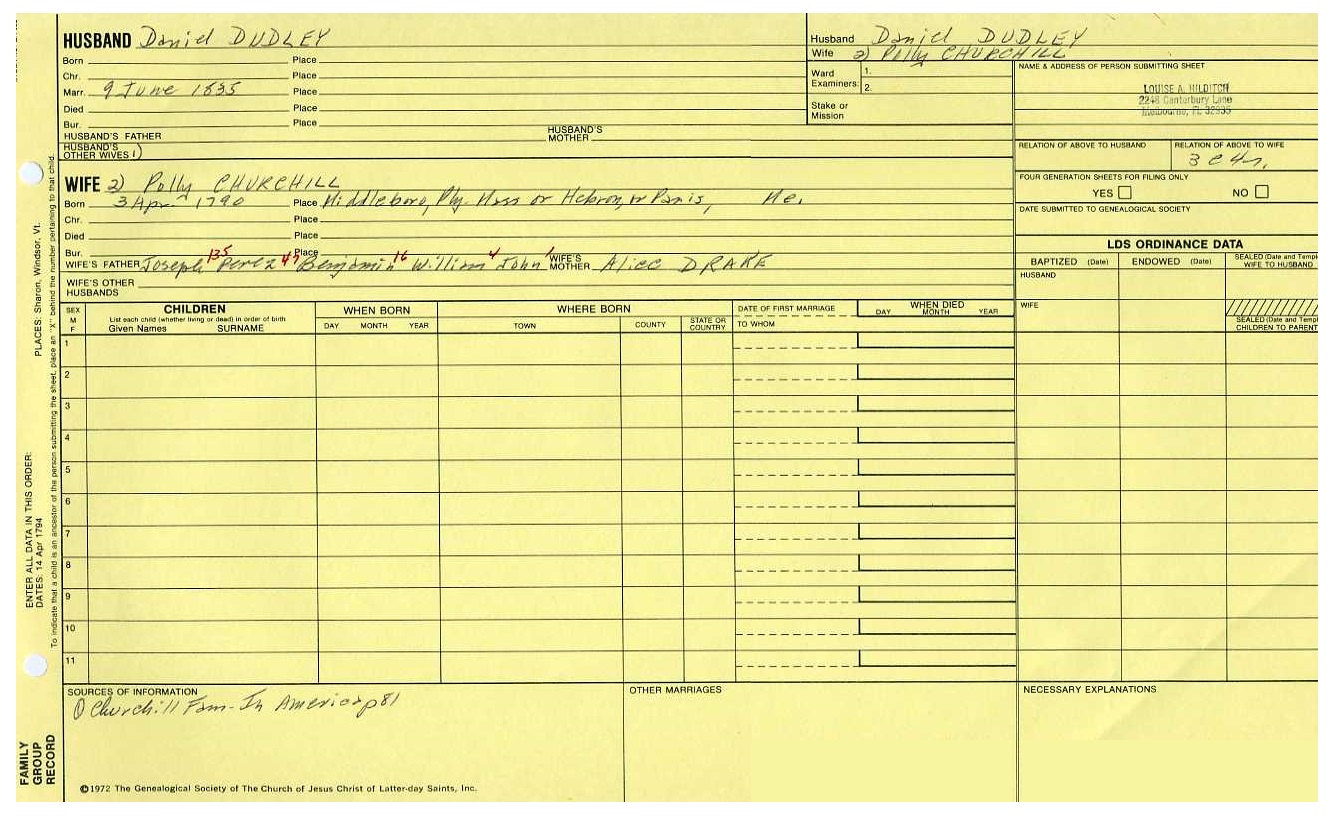 HUSBAND Daniel DUDLEY
Born Place
Chr. Place
Marr. 9 June 1835 Place
Died Place
Bur. Place
HUSBAND'S FATHER HUSBAND'S MOTHER
HUSBAND'S OTHER WIVES 1)
Husband Daniel DUDLEY
Wife 2) Polly CHURCHILL
Ward Examiners: 1.
2.
Stake or Mission
NAME & ADDRESS OF PERSON SUBMITTING SHEET
LOUISE A. HILDITCH
2248 Canterbury Lane
Melbourne, FL 32935
RELATION OF ABOVE TO HUSBAND RELATION OF ABOVE TO WIFE
3 C 4 r.
FOUR GENERATION SHEETS FOR FILING ONLY
YES NO
DATE SUBMITTED TO GENEALOGICAL SOCIETY
WIFE 2) Polly CHURCHILL
Born 3 Apr 1790 Place Middleboro, Ply. Mass or Hebron, or Paris, Me.
Chr. Place
Died Place
Bur. Place
WIFE'S FATHER Joseph 135 Perez 47 Benjamin 16 William 4 John 1 WIFE'S MOTHER Alice DRAKE
WIFE'S OTHER HUSBANDS
LDS ORDINANCE DATA
BAPTIZED (Date) ENDOWED (Date) SEALED (Date and Templ
WIFE TO HUSBAND
HUSBAND
WIFE
SEALED (Date and Templ
CHILDREN TO PARENT
SEX M F
CHILDREN
List each child (whether living or dead) in order of birth
Given Names SURNAME
WHEN BORN
DAY MONTH YEAR
WHERE BORN
TOWN COUNTY STATE OR COUNTRY
DATE OF FIRST MARRIAGE
TO WHOM
WHEN DIED
DAY MONTH YEAR
1
2
3
4
5
6
7
8
9
10
11
SOURCES OF INFORMATION
① Churchill Fam- In America p81
OTHER MARRIAGES
NECESSARY EXPLANATIONS
©1972 The Genealogical Society of The Church of Jesus Christ of Latter-day Saints, Inc.
FAMILY
GROUP
RECORD
ENTER ALL DATA IN THIS ORDER:
DATES: 14 Apr 1794 PLACES: Sharon, Windsor, Vt.
To indicate that a child is an ancestor of the person submitting the sheet, place an "X" behind the number pertaining to that child.